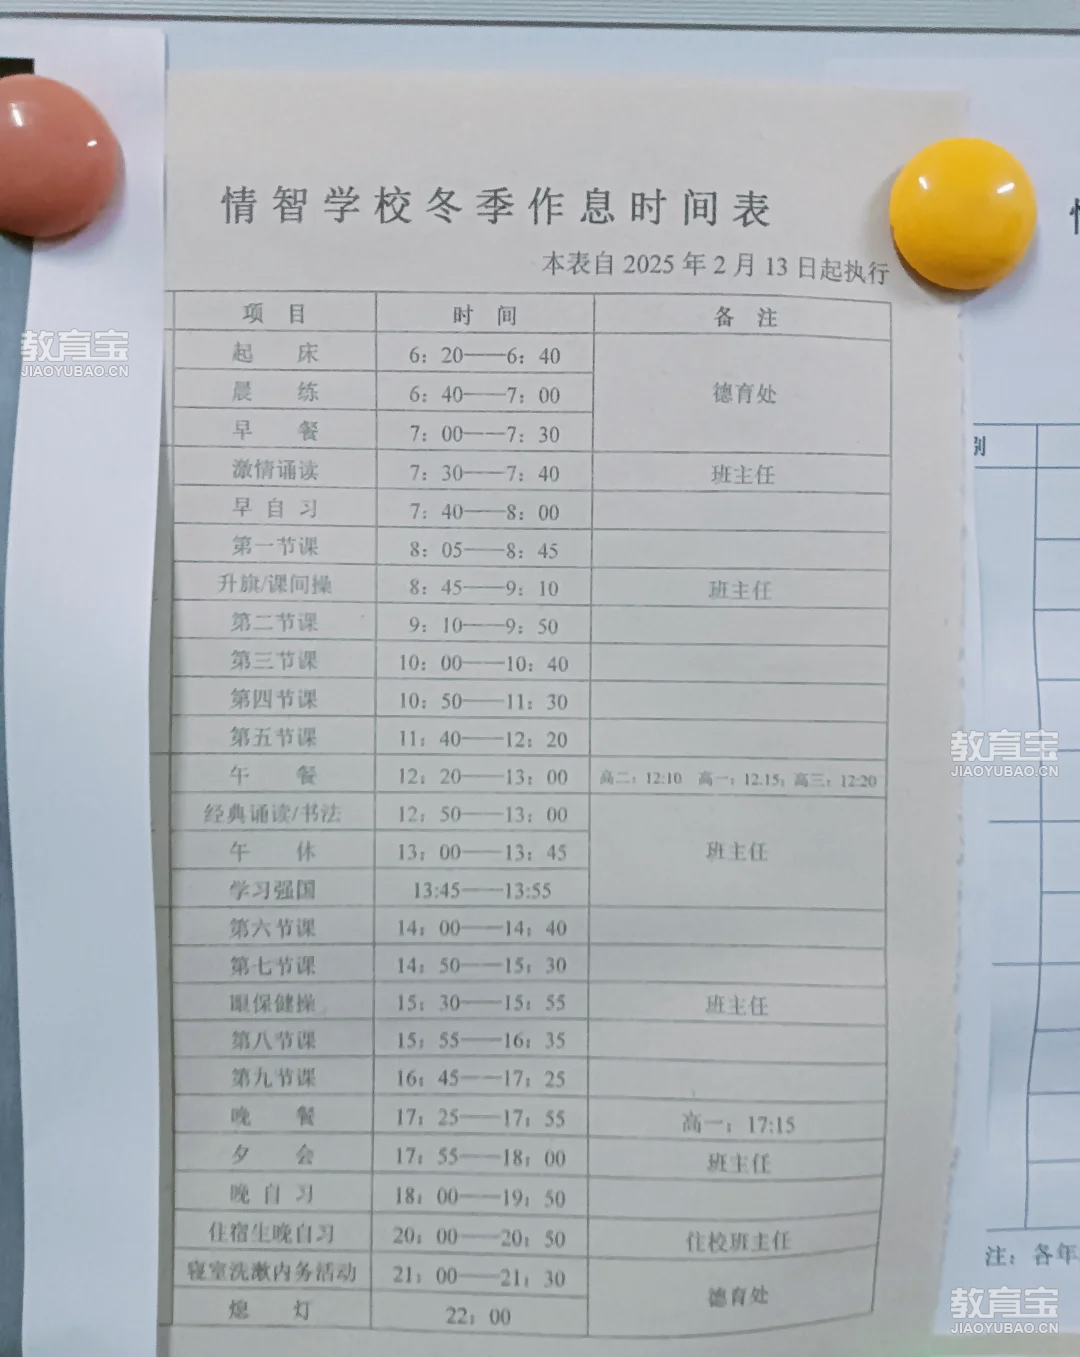 情智学校冬季作息时间表
本表自 2025 年 2 月 13 日起执行
项 目 时 间 备 注
起 床 6：20——6：40
晨 练 6：40——7：00 德育处
早 餐 7：00——7：30
激情诵读 7：30——7：40 班主任
早 自 习 7：40——8：00
第一节课 8：05——8：45
升旗/课间操 8：45——9：10 班主任
第二节课 9：10——9：50
第三节课 10：00——10：40
第四节课 10：50——11：30
第五节课 11：40——12：20
午 餐 12：20——13：00 高二：12:10 高一：12:15；高三：12:20
经典诵读/书法 12：50——13：00
午 休 13：00——13：45 班主任
学习强国 13:45——13:55
第六节课 14：00——14：40
第七节课 14：50——15：30
眼保健操 15：30——15：55 班主任
第八节课 15：55——16：35
第九节课 16：45——17：25
晚 餐 17：25——17：55 高一：17:15
夕 会 17：55——18：00 班主任
晚 自 习 18：00——19：50
住宿生晚自习 20：00——20：50 住校班主任
寝室洗漱内务活动 21：00——21：30 德育处
熄 灯 22：00
别
注：各年
教育宝
JIAOYUBAO.CN
教育宝
JIAOYUBAO.CN
教育宝
JIAOYUBAO.CN